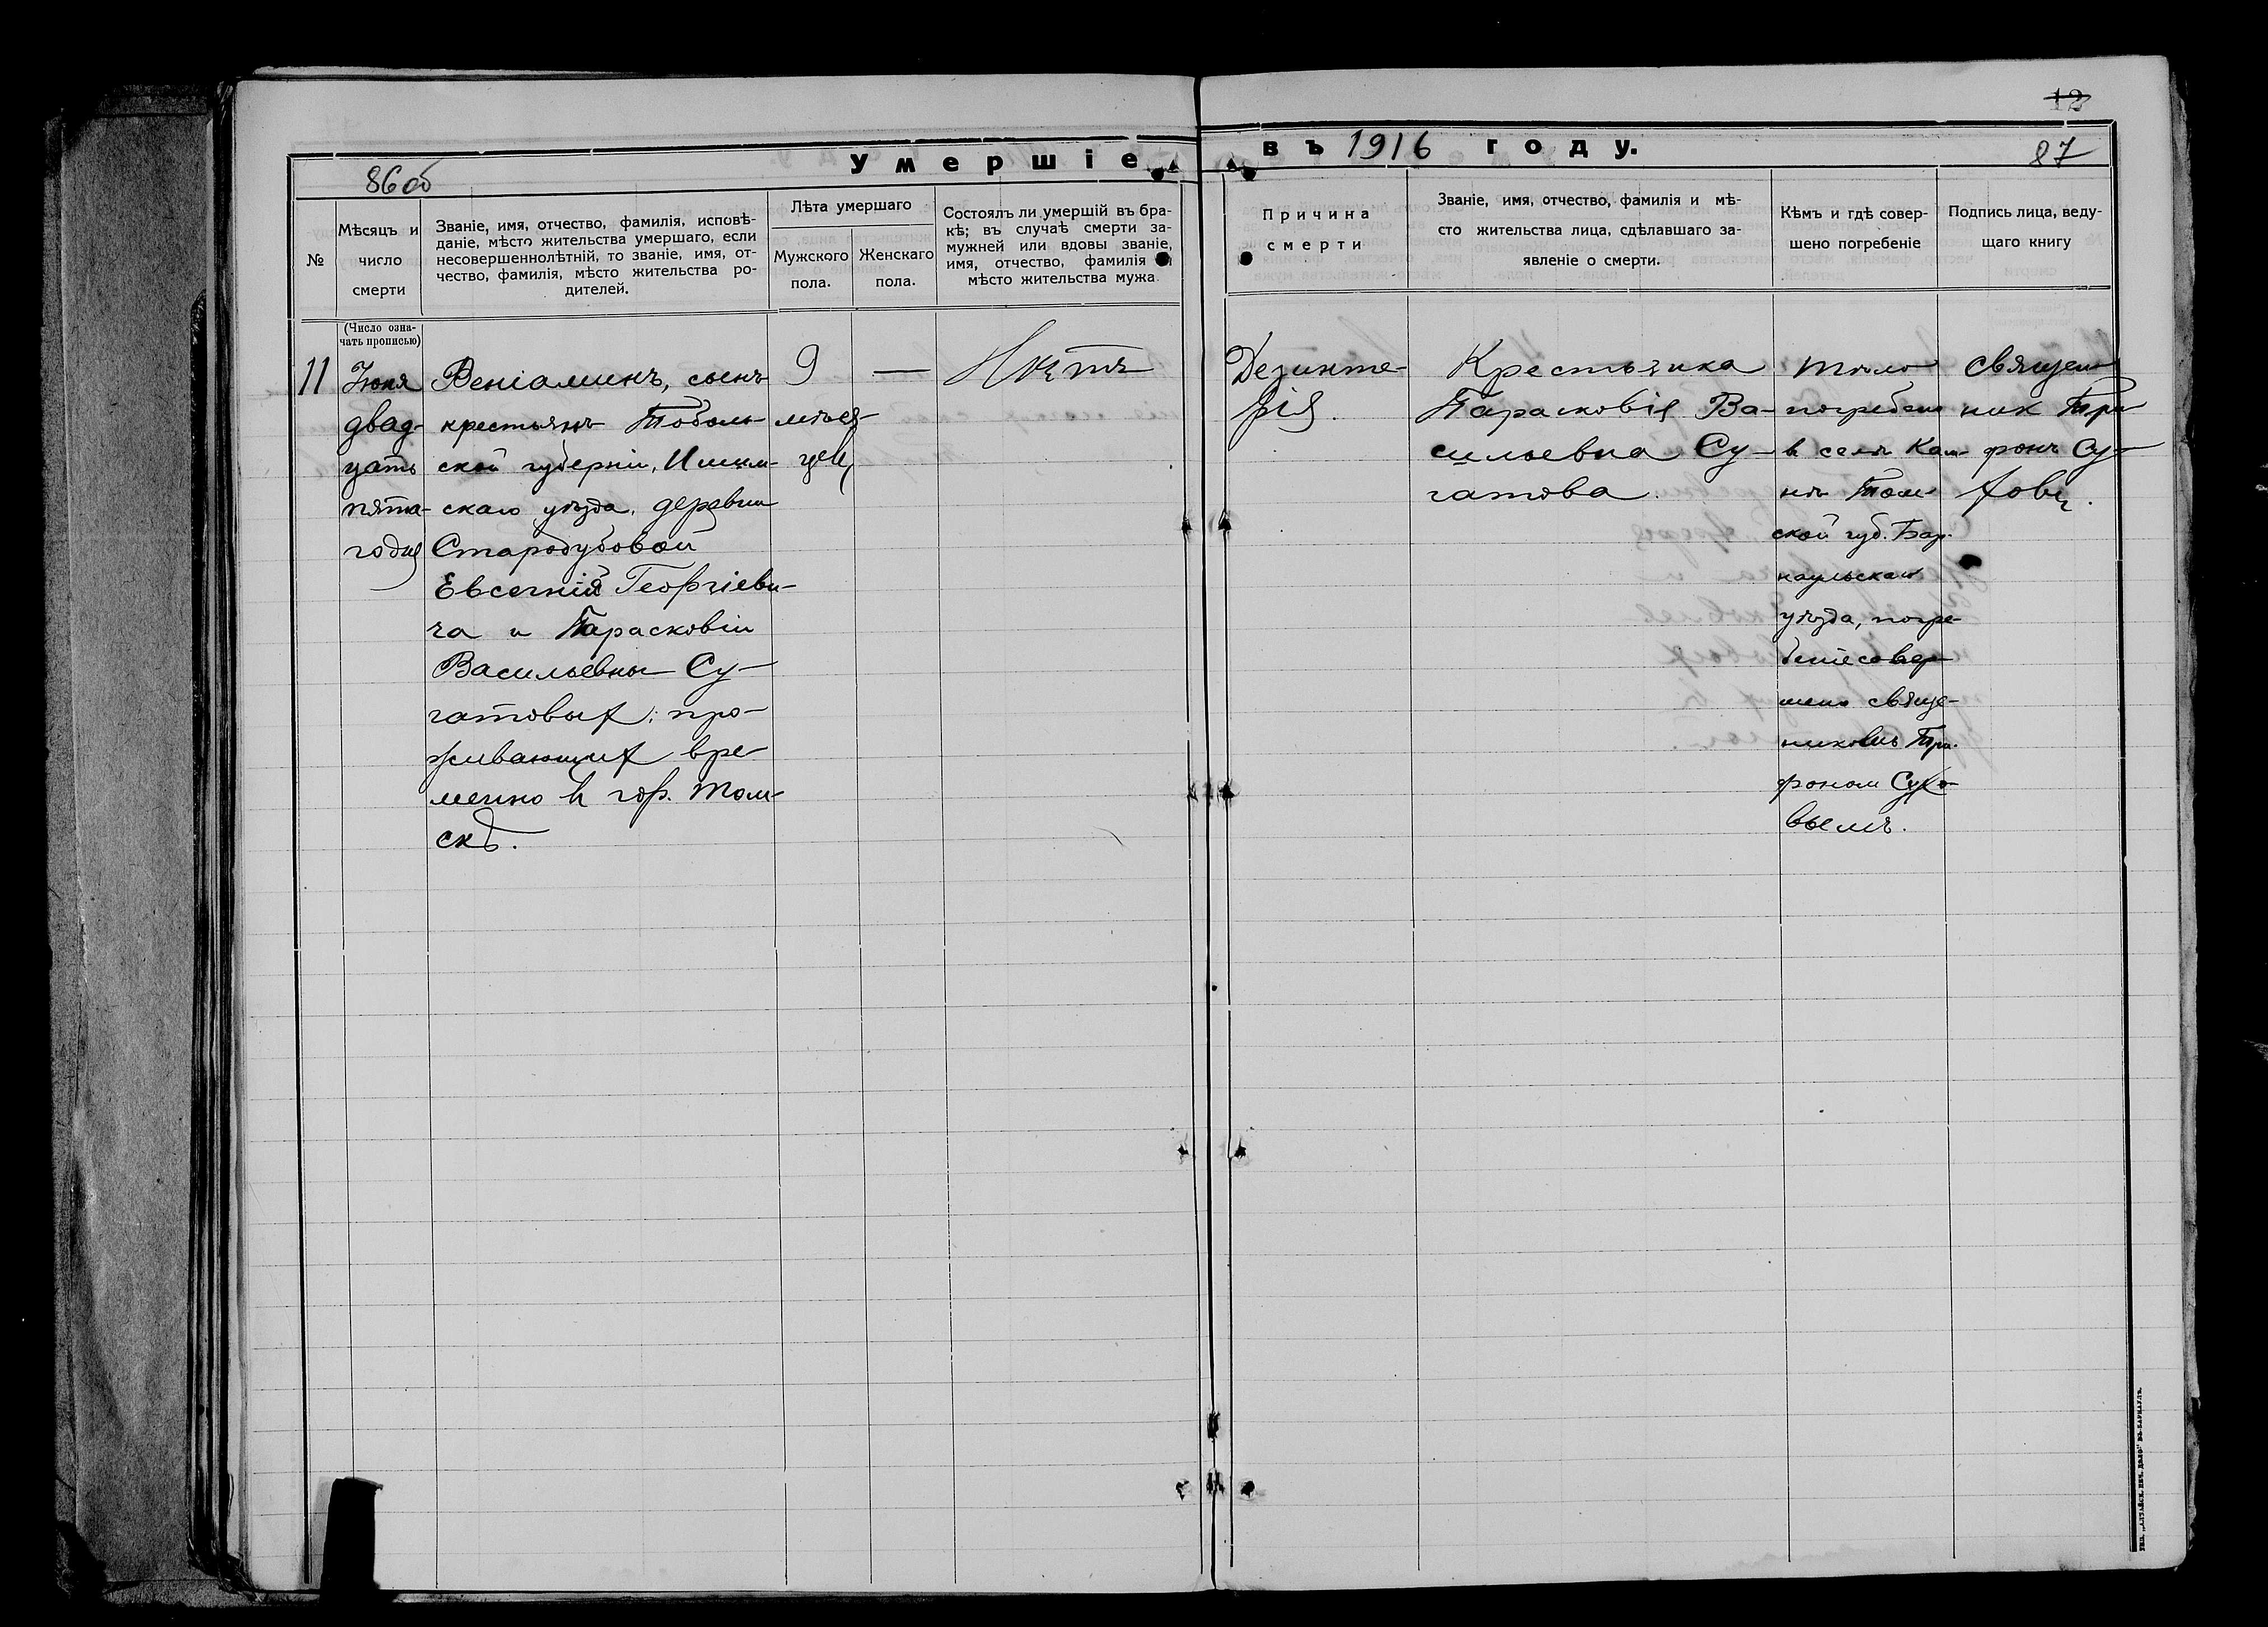 12
Умершіе
въ 1916 году.
86об
87
№
Мѣсяцъ и
число
смерти
Званіе, имя, отчество, фамилія, исповѣ-
даніе, мѣсто жительства умершаго, если
несовершеннолѣтній, то званіе, имя, от-
чество, фамилія, мѣсто жительства ро-
дителей.
Лѣта умершаго
Мужского
пола.
Женскаго
пола.
Состоялъ ли умершій въ бра-
кѣ; въ случаѣ смерти за-
мужней или вдовы званіе,
имя, отчество, фамилія и
мѣсто жительства мужа.
Причина
смерти
Званіе, имя, отчество, фамилія и мѣ-
сто жительства лица, сдѣлавшаго за-
явленіе о смерти.
Кѣмъ и гдѣ совер-
шено погребеніе
Подпись лица, веду-
щаго книгу
(Число озна-
чать прописью)
11
Іюня
двад-
цать
пята-
годня
Веніаминъ, сынъ
крестьянъ Тоболь-
ской губерніи, Ишим-
скаго уѣзда, деревни
Стародубовой
Евсегнія Георгіеви-
ча и Парасковіи
Васильевны Су-
гатовых; про-
живающих вре-
менно в гор. Том-
скѣ.
9
мѣся-
цев
—
Нѣтъ
Дезинте-
рія.
Крестьянка
Парасковія Ва-
сильевна Су-
гатова.
Тѣло
погребено
в селѣ Кам-
нѣ Том-
ской губ. Бар-
наульскаго
уѣзда, погре-
беніе совер-
шено свяще-
никомъ Три-
фоном Сухо-
вымъ.
Священ
ник Три
фонъ Су-
ховъ.
ТИП. „АЛТАЙСК. ПЕЧ. ДѢЛО" ВЪ БАРНАУЛѢ.